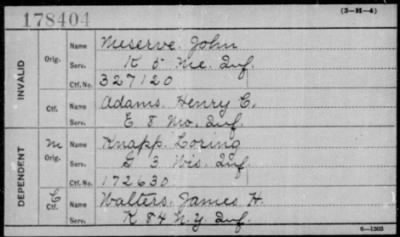 178404
(3-H-4)
INVALID
Orig. Name Meserve. John
Serv. K 5 Me. Inf.
Ctf. No. 327120
Ctf. Name Adams. Henry C.
Serv. E 8 Mo. Inf.
DEPENDENT
M Orig. Name Knapp. Loring
Serv. G 3 Wis. Inf.
Ctf. No. 172630
Ctf. Name Walters. James H.
Serv. K 84 N.Y. Inf.
6-1303